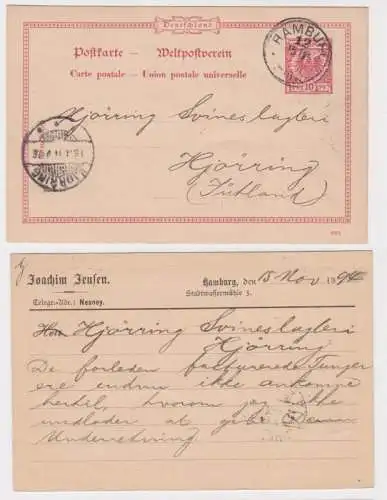 Deutschland
Postkarte – Weltpostverein
Carte postale – Union postale universelle
HAMBURG
10
HJØRRING
Hjörring Svineslagteri
Hjörring
(Jütland)
Joachim Jensen.
Hamburg, den 15 Nov 1894
Stadtwassermühle 3.
Telegr.-Adr.: Nesney.
Hjörring Svineslagteri
Hjörring
De forleden fakturerede Tunger
ere endnu ikke ankomne
hertil, hvorom jeg ikke
undlader at give Dem
Underretning